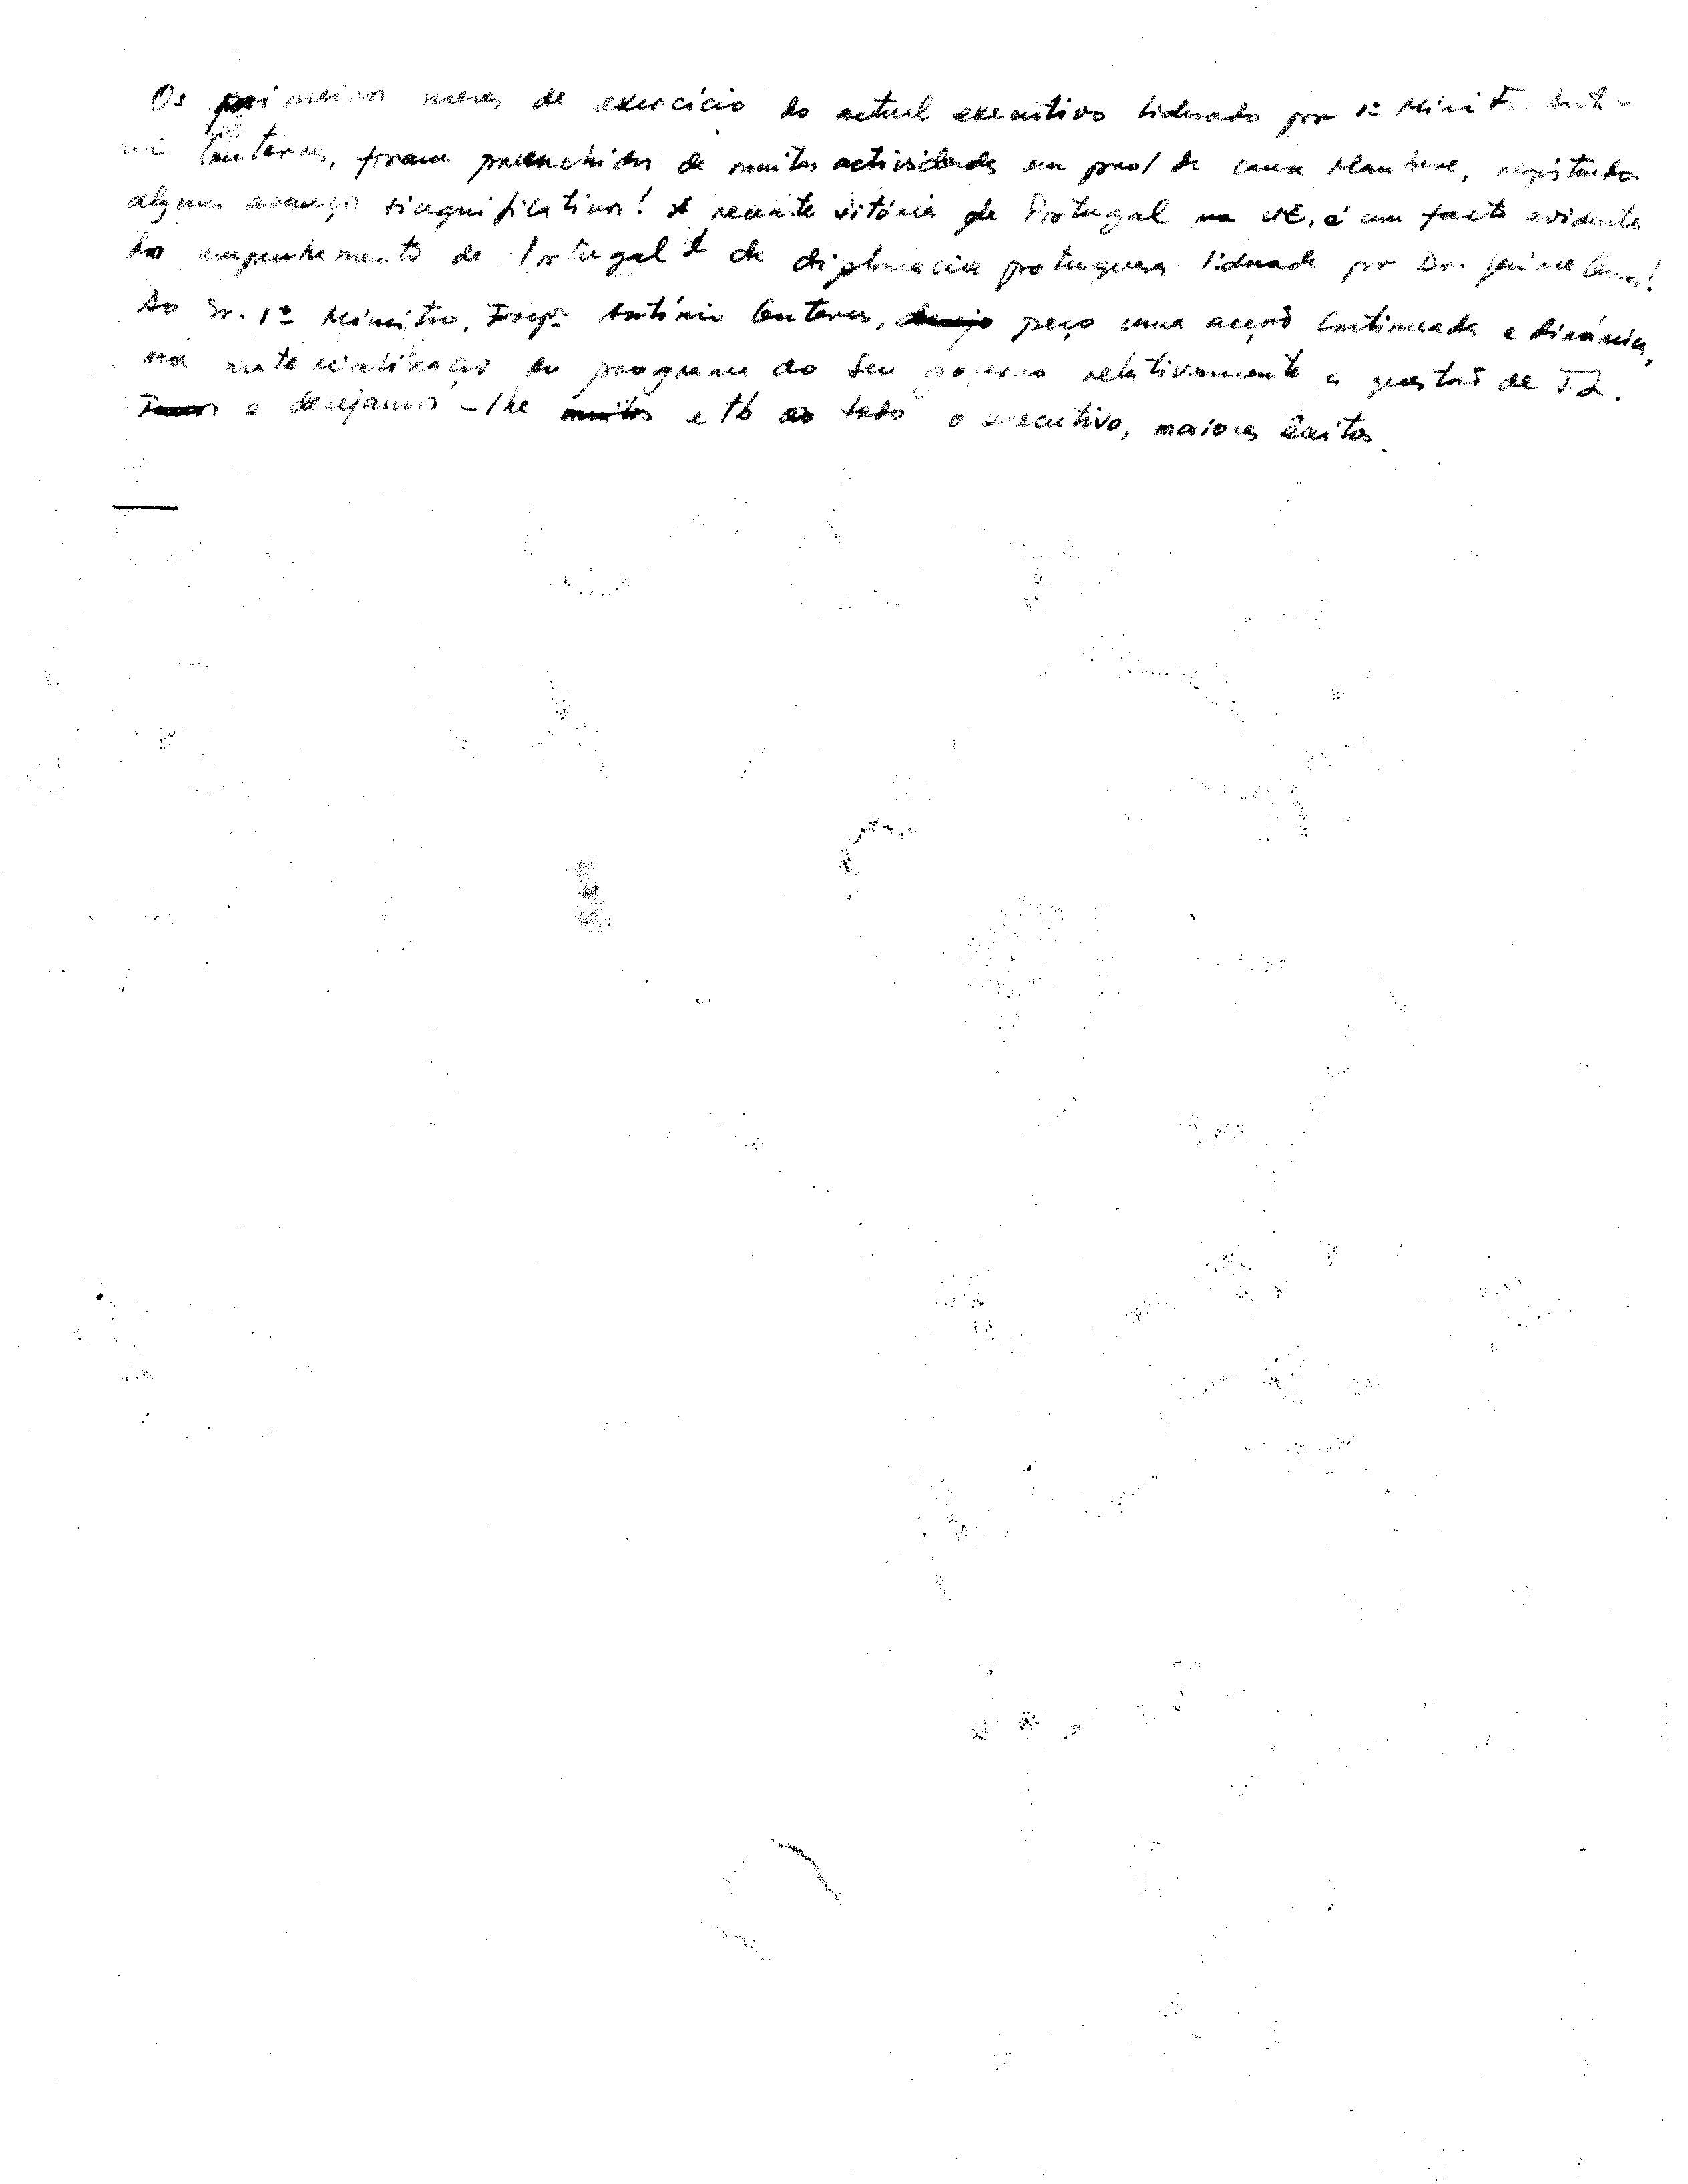 Os primeiros meses de exercício do actual executivo liderado por 1º Minist. Antó-
nio Guterres, foram preenchidos de muitas actividades em prol da causa Maubere, registando
alguns avanços singnificativos! A recente vitória de Portugal na UE, é um facto evidente
do empenhamento de Portugal e da diplomacia portuguesa liderada por Dr. Jaime Gama!
Ao Sr. 1º Ministro, Engº António Guterres, desejo peço uma acção continuada e dinámica,
na materialização do programa do seu governo relativamente a questão de TL.
e desejamos-lhe muitos e tb ao todo o executivo, maiores êxitos.